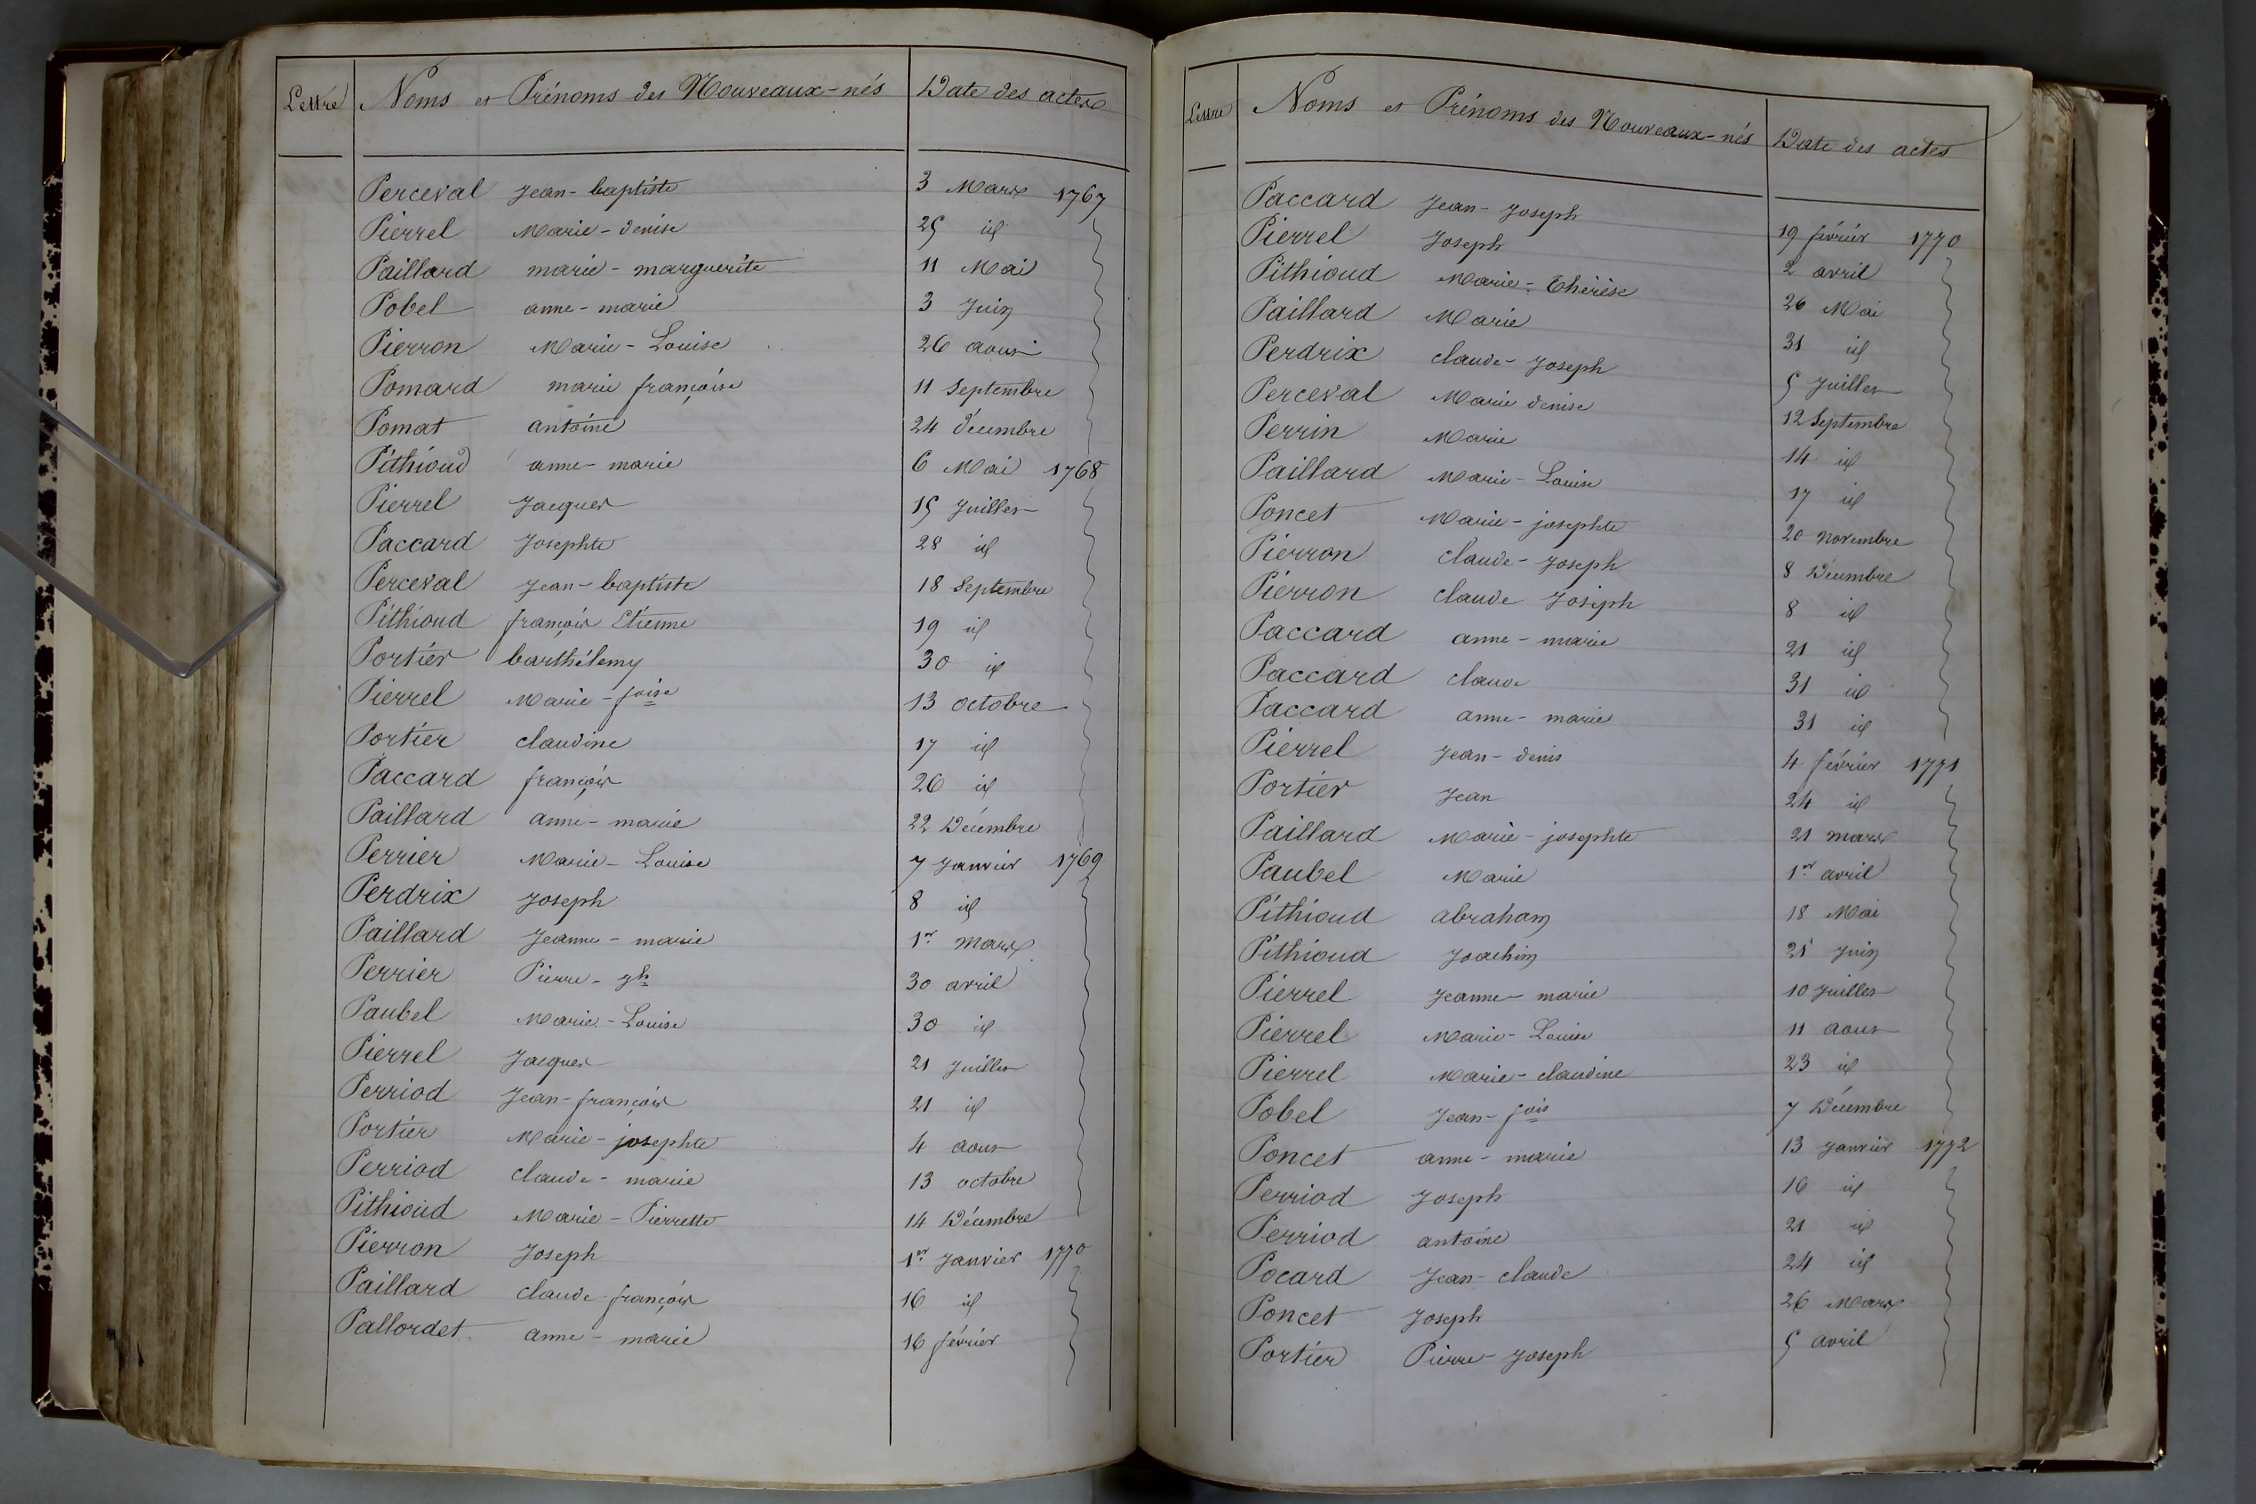 Lettre Noms et Prénoms des Nouveaux-nés Date des actes
Perceval Jean-baptiste 3 Mars 1767
Pierrel Marie-denise 25 id
Paillard marie-marguerite 11 Mai
Pobel anne-marie 3 Juin
Pierron Marie-Louise 26 aout
Pomard marie françoise 11 Septembre
Pomat antoine 24 décembre
Pithioud anne-marie 6 Mai 1768
Pierrel Jacques 15 Juillet
Paccard Josephte 28 id
Perceval Jean-baptiste 18 Septembre
Pithioud françois Etienne 19 id
Portier barthélemy 30 id
Pierrel Marie-foise 13 octobre
Portier claudine 17 id
Paccard françois 26 id
Paillard anne-marie 22 Décembre
Perrier Marie-Louise 7 Janvier 1769
Perdrix Joseph 8 id
Paillard Jeanne-marie 1er Mars
Perrier Pierre-Jh 30 avril
Paubel Marie-Louise 30 id
Pierrel Jacques 21 Juillet
Perriod Jean-françois 21 id
Portier Marie-josephte 4 aout
Perriod claude-marie 13 octobre
Pithioud Marie-Pierrette 14 Décembre
Pierron Joseph 1er Janvier 1770
Paillard claude-françois 16 id
Pallordet anne-marie 16 février
Lettre Noms et Prénoms des Nouveaux-nés Date des actes
Paccard Jean-Joseph 19 février 1770
Pierrel Joseph 2 avril
Pithioud Marie-Thérèse 26 Mai
Paillard Marie 31 id
Perdrix claude-Joseph 5 Juillet
Perceval Marie denise 12 Septembre
Perrin Marie 14 id
Paillard Marie-Louise 17 id
Poncet Marie-josephte 20 novembre
Pierron claude-Joseph 8 Décembre
Pierron claude Joseph 8 id
Paccard anne-marie 21 id
Paccard claude 31 id
Paccard anne-marie 31 id
Pierrel Jean-denis 4 février 1771
Portier Jean 24 id
Paillard Marie-josephte 21 mars
Paubel Marie 1er avril
Pithioud abraham 18 Mai
Pithioud Joachim 25 Juin
Pierrel Jeanne-marie 10 Juillet
Pierrel Marie-Louise 11 aout
Pierrel Marie-claudine 23 id
Pobel Jean-fois 7 Décembre
Poncet anne-marie 13 Janvier 1772
Perriod Joseph 16 id
Perriod antoine 21 id
Pocard Jean-claude 24 id
Poncet Joseph 26 Mars
Portier Pierre-Joseph 5 avril